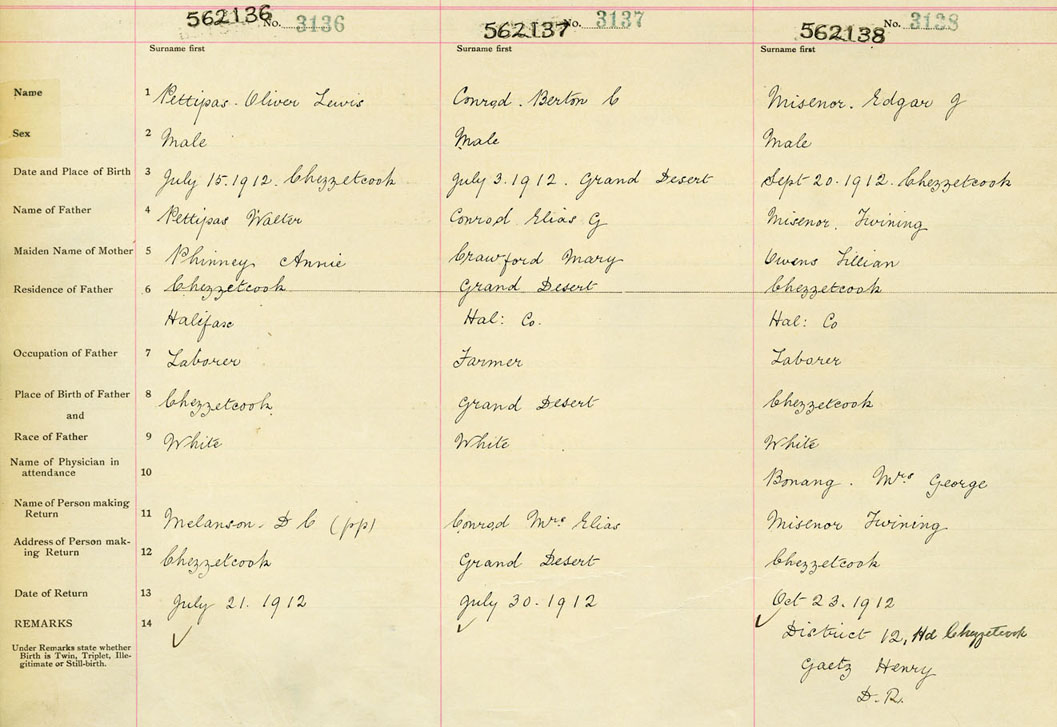 562136 No. 3136 562137 No. 3137 562138 No. 3138
Surname first Surname first Surname first
Name 1 Pettipas. Oliver Lewis Conrod. Berton C Misenor. Edgar J
Sex 2 Male Male Male
Date and Place of Birth 3 July 15.1912. Chezzetcook July 3.1912. Grand Desert Sept 20.1912. Chezzetcook
Name of Father 4 Pettipas Walter Conrod Elias G Misenor. Twining
Maiden Name of Mother 5 Phinney Annie Crawford Mary Owens Lillian
Residence of Father 6 Chezzetcook Grand Desert Chezzetcook
Halifax Hal: Co. Hal: Co
Occupation of Father 7 Laborer Farmer Laborer
Place of Birth of Father 8 Chezzetcook Grand Desert Chezzetcook
and
Race of Father 9 White White White
Name of Physician in
attendance 10 Bonang. Mrs George
Name of Person making
Return 11 Melanson. D C (pp) Conrod Mrs Elias Misenor Twining
Address of Person mak-
ing Return 12 Chezzetcook Grand Desert Chezzetcook
Date of Return 13 July 21. 1912 July 30. 1912 Oct 23. 1912
REMARKS 14 District 12, Hd Chezzetcook
Under Remarks state whether
Birth is Twin, Triplet, Ille-
gitimate or Still-birth.
Gaetz Henry
D.R.